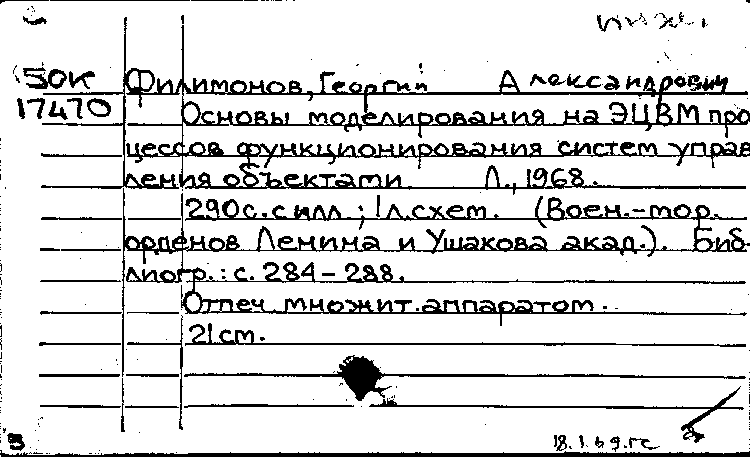 50К Филимонов, Георгий Александрович
17470 Основы моделирования на ЭЦВМ про
цессов функционирования систем управ
ления объектами. Л., 1968.
290с. с илл.; 1 л.схем. (Воен.-мор.
орденов Ленина и Ушакова акад.). Биб-
лиогр.: с. 284-288.
Отпеч. множит. аппаратом.
21 см.
18.1.69.